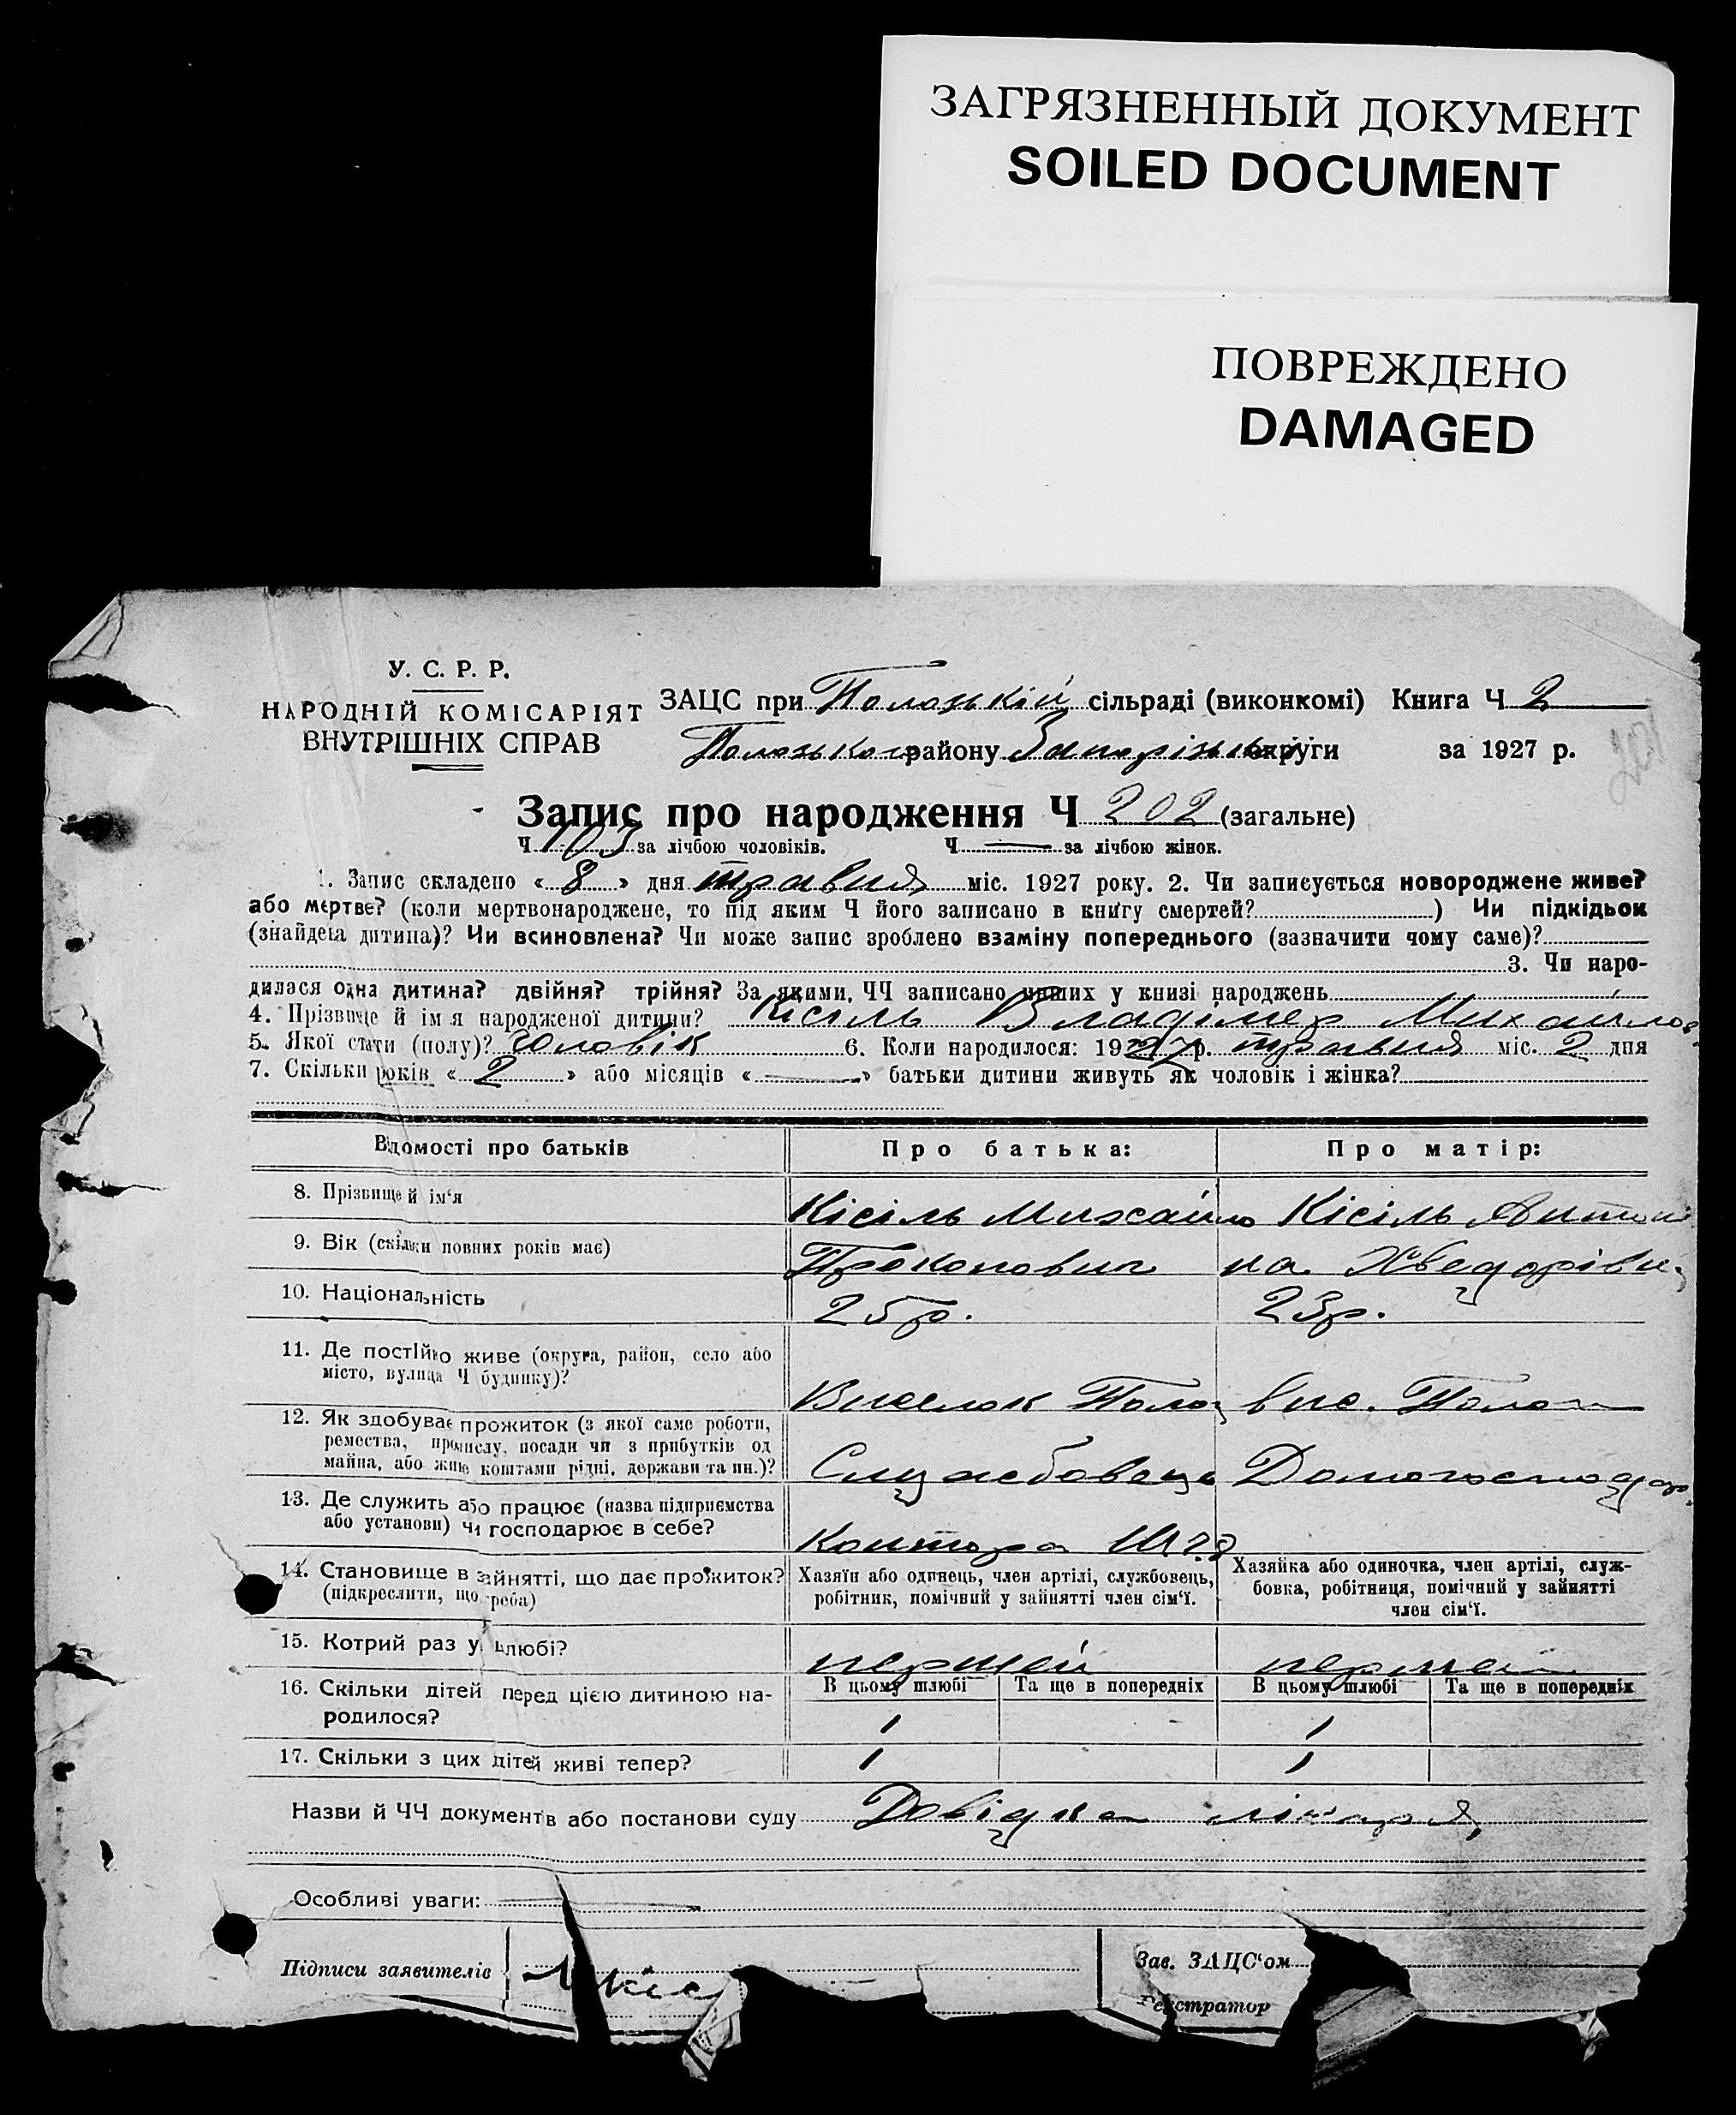 ЗАГРЯЗНЕННЫЙ ДОКУМЕНТ
SOILED DOCUMENT
ПОВРЕЖДЕНО
DAMAGED
У. С. Р. Р.
НАРОДНІЙ КОМІСАРІЯТ
ВНУТРІШНІХ СПРАВ
ЗАЦС при Пологській сільраді (виконкомі) Книга Ч 2
Пологського району Запорізької округи за 1927 р.
Запис про народження Ч 202 (загальне)
Ч 103 за лічбою чоловіків. Ч — за лічбою жінок.
1. Запис складено « 8 » дня травня міс. 1927 року. 2. Чи записується новороджене живе?
або мертве? (коли мертвонароджене, то під яким Ч його записано в книгу смертей? ) Чи підкідьок
(знайдена дитина)? Чи всиновлена? Чи може запис зроблено взаміну попереднього (зазначити чому саме)?
3. Чи наро-
дилася одна дитина? двійня? трійня? За якими, ЧЧ записано инших у книзі народжень
4. Прізвище й ім'я народженої дитини? Кісіль Владімер Михайлов
5. Якої стати (полу)? Чоловік 6. Коли народилося: 1927 р. травня міс. 2 дня
7. Скільки років « 2 » або місяців « — » батьки дитини живуть як чоловік і жінка?
Відомості про батьків Про батька: Про матір:
8. Прізвище й ім'я Кісіль Михайло Кісіль Антоні
9. Вік (скільки повних років має) Прокопович на Хведорівн
10. Національність 25 р. 23 р.
11. Де постійно живе (округа, район, село або
місто, вулиця Ч будинку)? Виселок Полог вис. Полог
12. Як здобуває прожиток (з якої саме роботи,
ремества, промислу, посади чи з прибутків од
майна, або живе коштами рідні, держави та ин.)? Службовець Домогосподар
13. Де служить або працює (назва підприємства
або установи) чи господарює в себе? Контора
14. Становище в зайнятті, що дає прожиток?
(підкреслити, що треба)
Хазяїн або одинець, член артілі, службовець,
робітник, помічний у зайнятті член сім'ї.
Хазяйка або одиночка, член артілі, служ-
бовка, робітниця, помічний у зайнятті
член сім'ї.
15. Котрий раз у шлюбі? перший перший
16. Скільки дітей перед цією дитиною на-
родилося?
В цьому шлюбі Та ще в попередніх В цьому шлюбі Та ще в попередніх
1 1
17. Скільки з цих дітей живі тепер? 1 1
Назви й ЧЧ документів або постанови суду Довідка лікаря
Особливі уваги:
Підписи заявителів Кіс
Зав. ЗАЦС'ом
Реєстратор